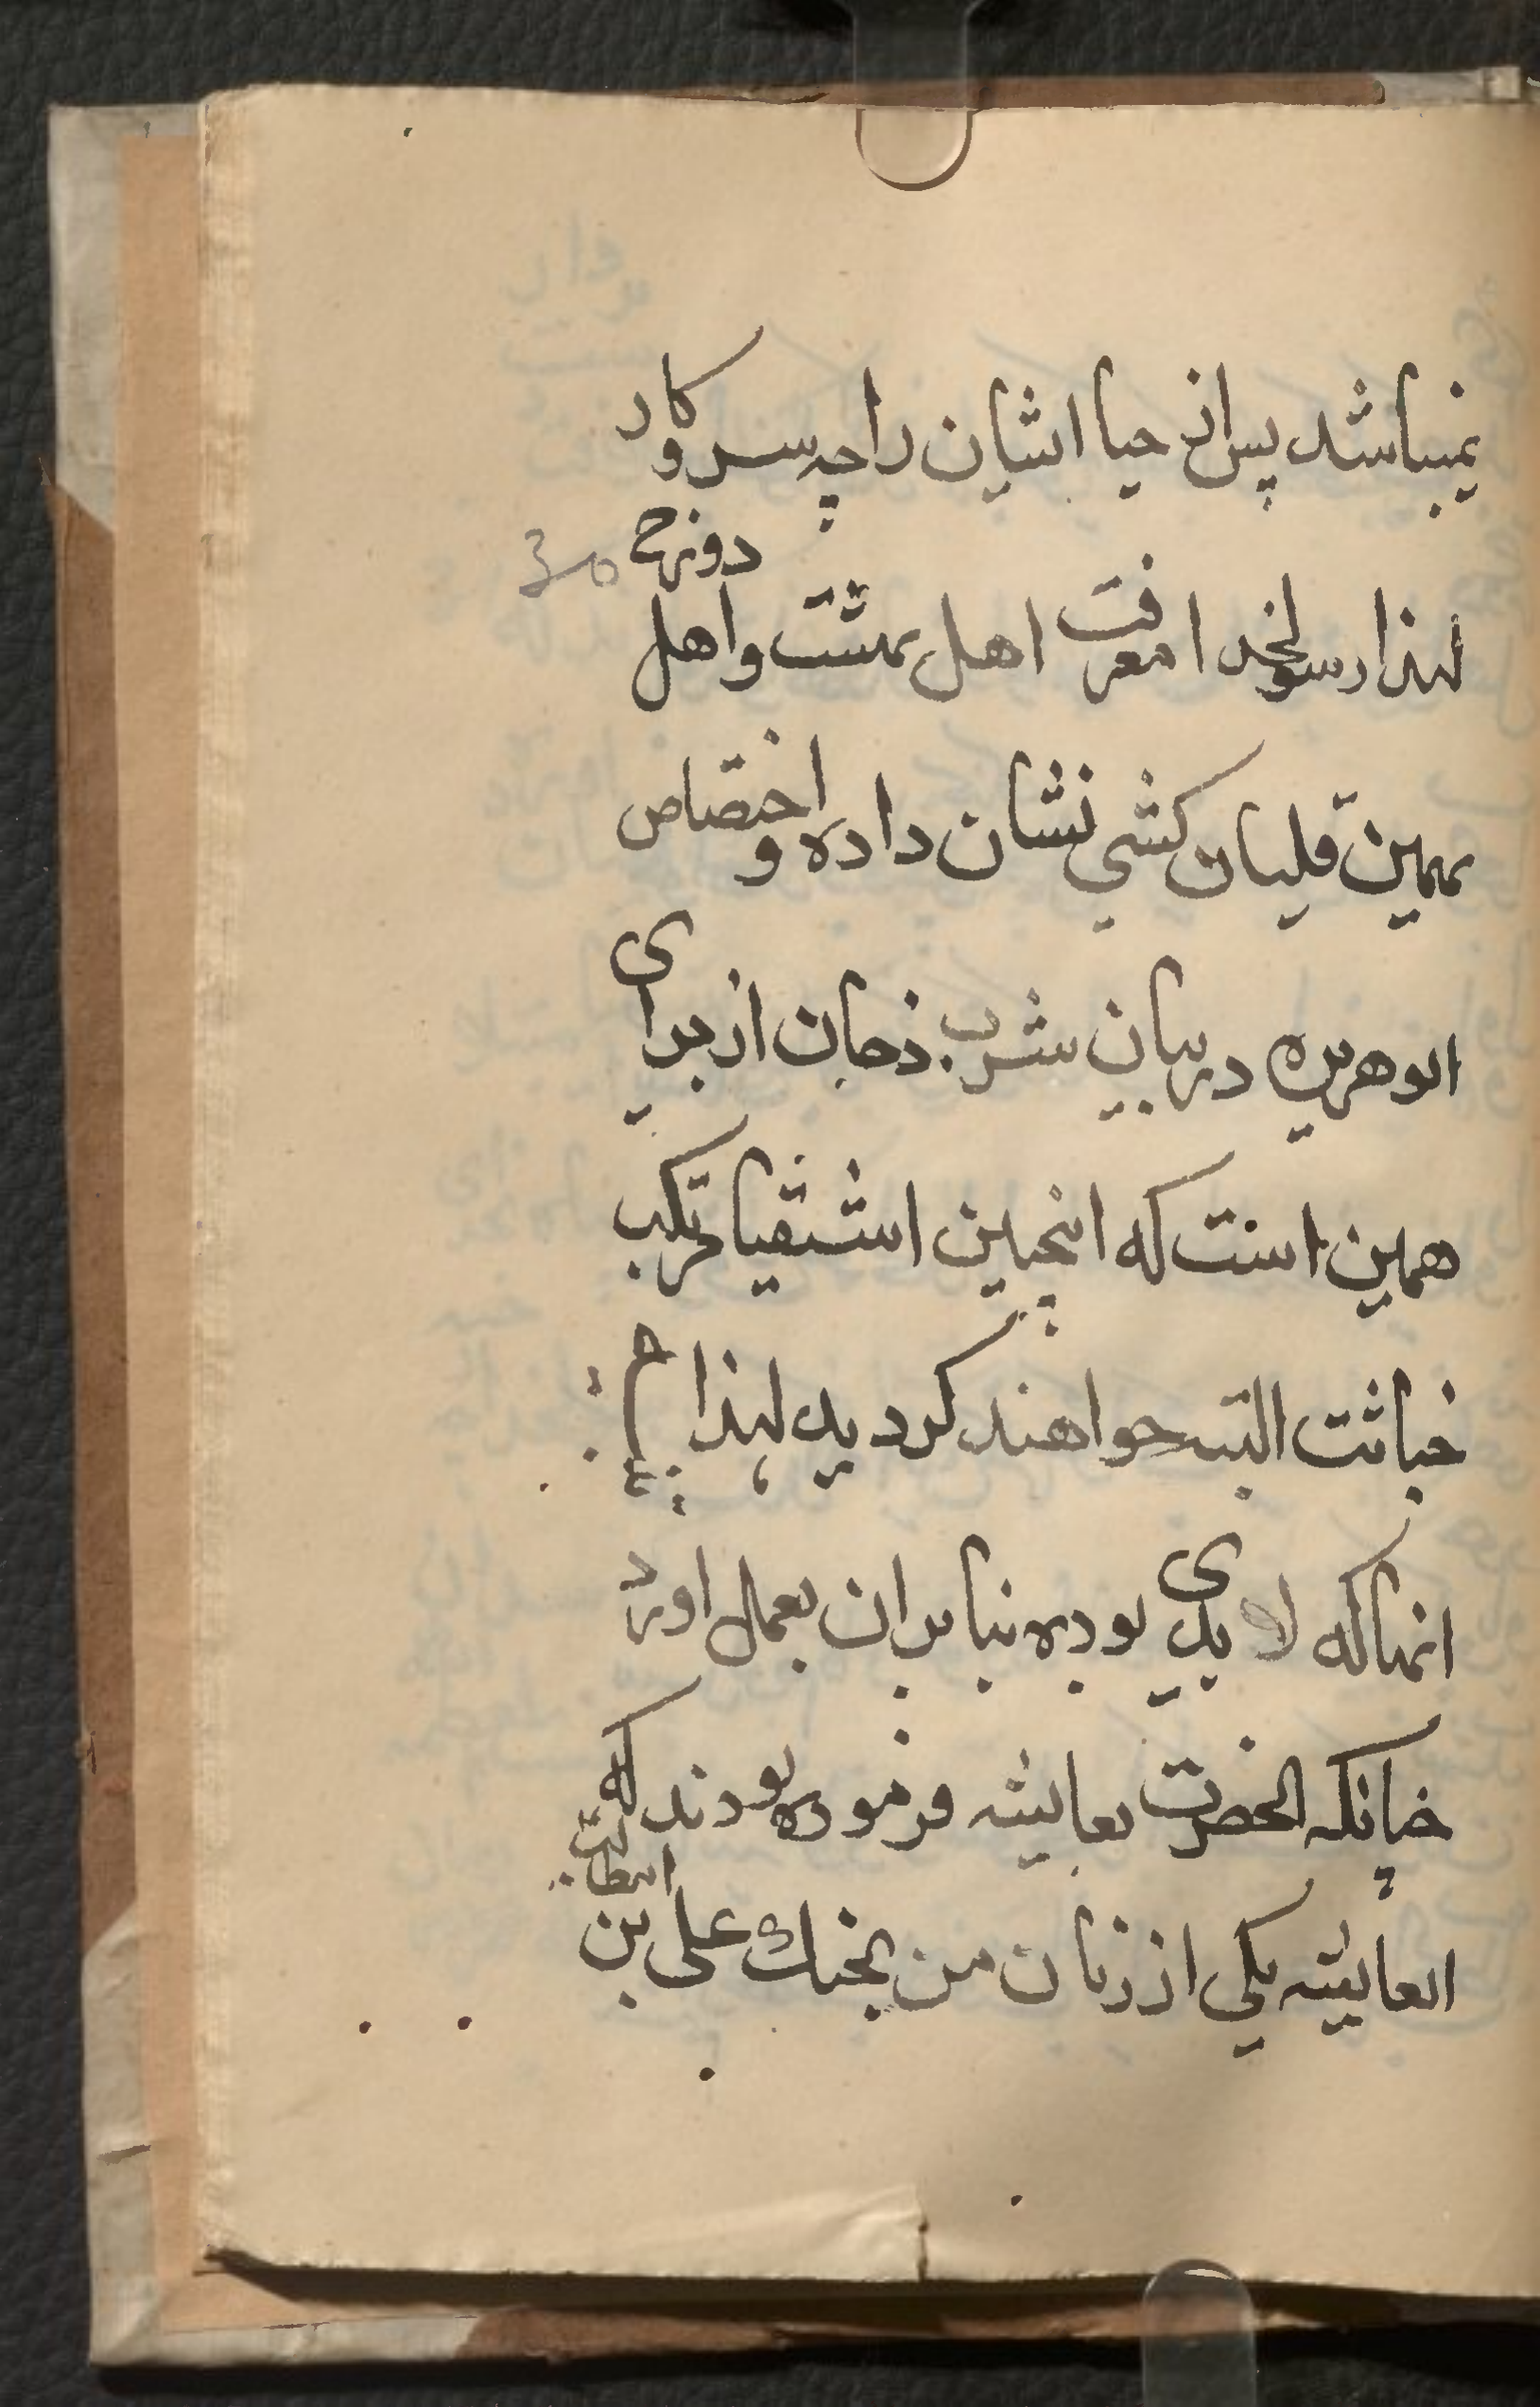 نمیباشد پس از حیا ایشان را چه سر و کار
لهذا رسولخدا معرفت اهل بهشت و اهل دوزخ
بهمین قلیان کشی نشان داده و اختصاص
ابوهریره در بیان شرب دخان از برای
همین است که اینچنین اشقیا مرتکب
خباثت البته خواهند کردید لهذا
انها که لابدی بوده بنابران بعمل اورد
چنانکه انحضرت بعایشه فرموده بودند که
ایعایشه یکی از زنان من بجنك علی بن ابیطالب